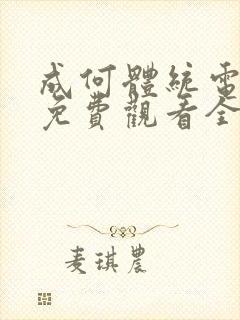 成何體統電
免費觀看全
麦琪農